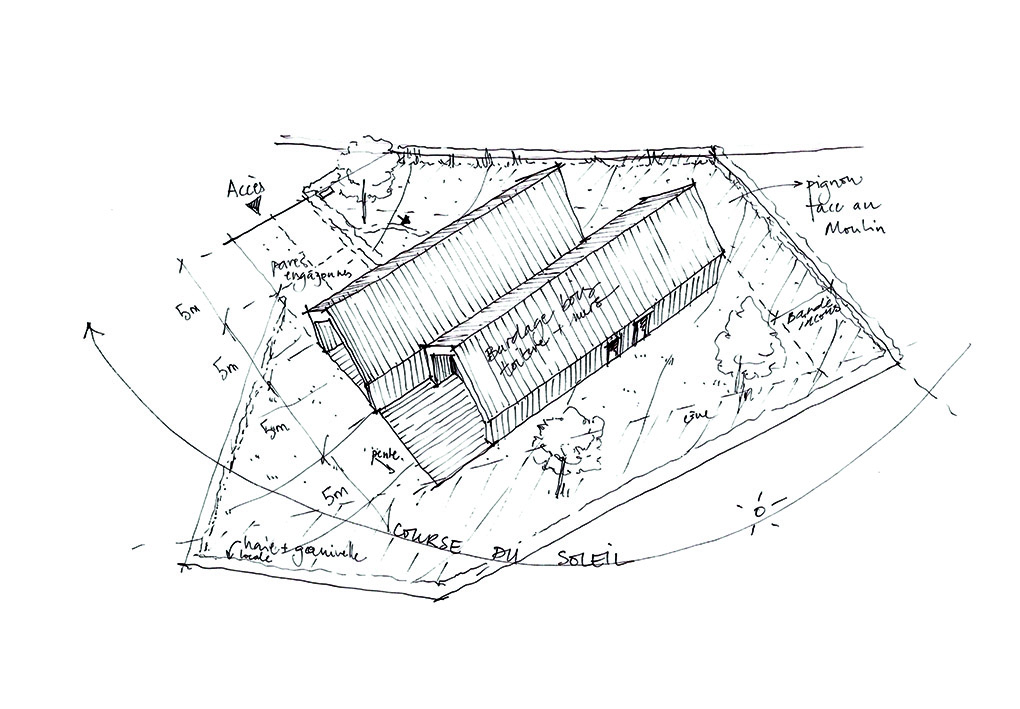 Accès
pignon
face au
Moulin
engazonnés
5m
5m
5m
5m
Bardage bois
toiture + murs
Bande
pente.
haie + ganivelle
locale
COURSE DU SOLEIL